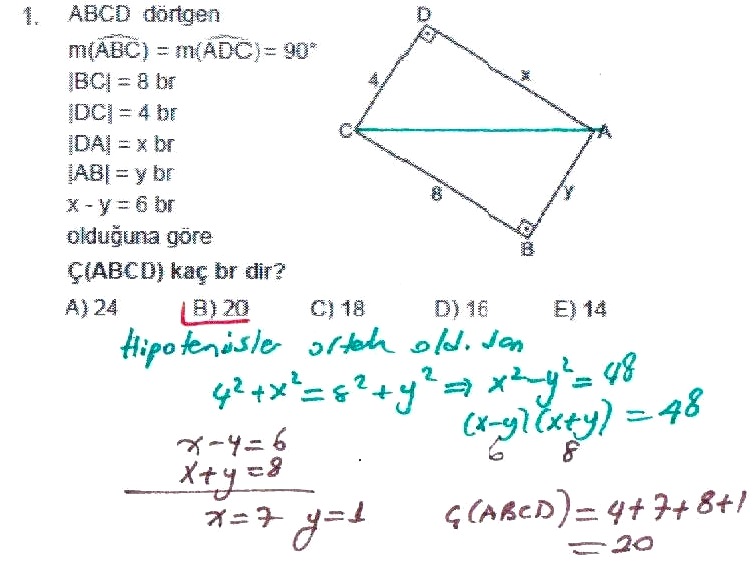 1. ABCD dörtgen
m(ABC) = m(ADC) = 90°
|BC| = 8 br
|DC| = 4 br
|DA| = x br
|AB| = y br
x - y = 6 br
olduğuna göre
Ç(ABCD) kaç br dir?
D
4
x
C
A
8
y
B
A) 24 B) 20 C) 18 D) 16 E) 14
Hipotenüsler ortak old. dan
4² + x² = 8² + y² ⇒ x² - y² = 48
(x-y)(x+y) = 48
6 8
x - y = 6
x + y = 8
x = 7 y = 1
Ç(ABCD) = 4 + 7 + 8 + 1
= 20